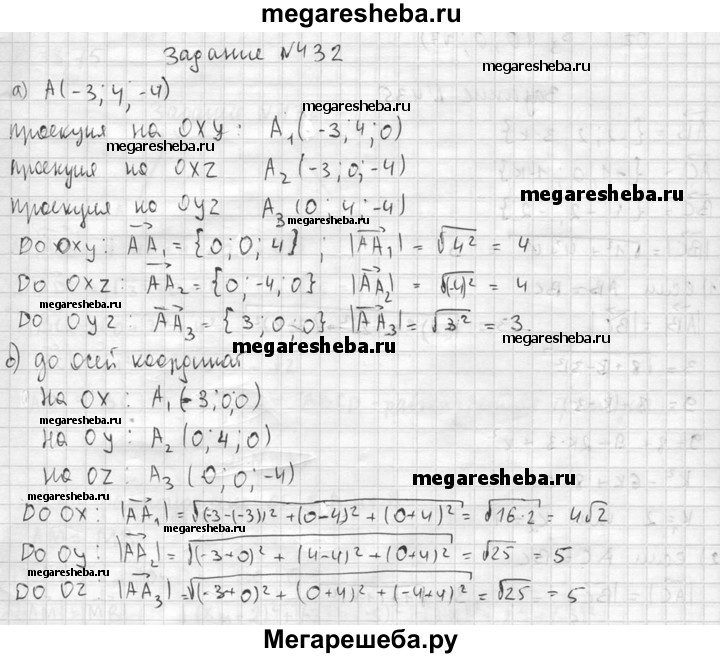 megaresheba.ru
Задание №432
megaresheba.ru
а) A(-3; 4; -4)
megaresheba.ru
проекция на OXY: A₁(-3; 4; 0)
megaresheba.ru
проекция на OXZ A₂(-3; 0; -4)
megaresheba.ru
проекция на OYZ A₃(0; 4; -4)
megaresheba.ru
До OXY: AA₁ = {0; 0; 4}; |AA₁| = √4² = 4
До OXZ: AA₂ = {0; -4; 0} |AA₂| = √(-4)² = 4
megaresheba.ru
megaresheba.ru
До OYZ: AA₃ = {3; 0; 0} |AA₃| = √3² = 3
megaresheba.ru
б) до осей координат
на OX: A₁(-3; 0; 0)
megaresheba.ru
на OY: A₂(0; 4; 0)
на OZ: A₃(0; 0; -4)
megaresheba.ru
megaresheba.ru
До OX: |AA₁| = √(-3-(-3))² + (0-4)² + (0+4)² = √16·2 = 4√2
megaresheba.ru
megaresheba.ru
До OY: |AA₂| = √(-3+0)² + (4-4)² + (0+4)² = √25 = 5
megaresheba.ru
До OZ: |AA₃| = √(-3+0)² + (0+4)² + (-4+4)² = √25 = 5
megaresheba.ru
Мегарешеба.ру